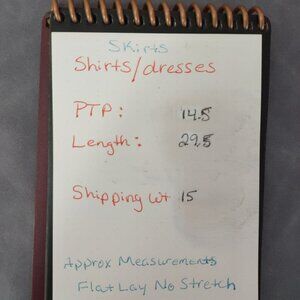 Skirts
Shirts/dresses
PTP: 14.5
Length: 29.5
Shipping wt 15
Approx Measurements
Flat Lay No Stretch